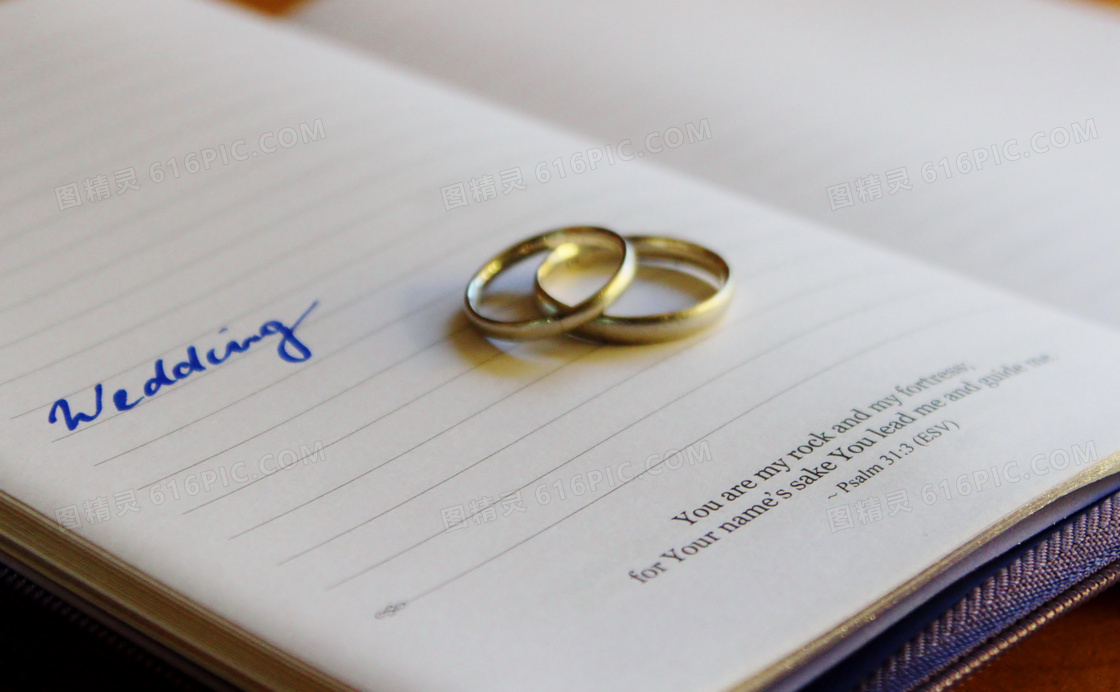 图精灵 616PIC.COM
图精灵 616PIC.COM
图精灵 616PIC.COM
Wedding
You are my rock and my fortress;
for Your name's sake You lead me and guide me
~ Psalm 31:3 (ESV)
图精灵 616PIC.COM
图精灵 616PIC.COM
图精灵 616PIC.COM